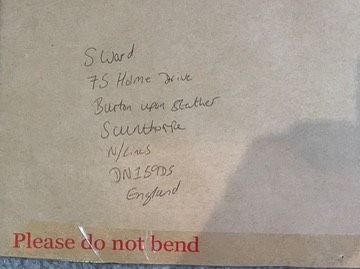 S Ward
75 Holme Drive
Burton upon Stather
Scunthorpe
N/Lines
DN159DS
England
Please do not bend